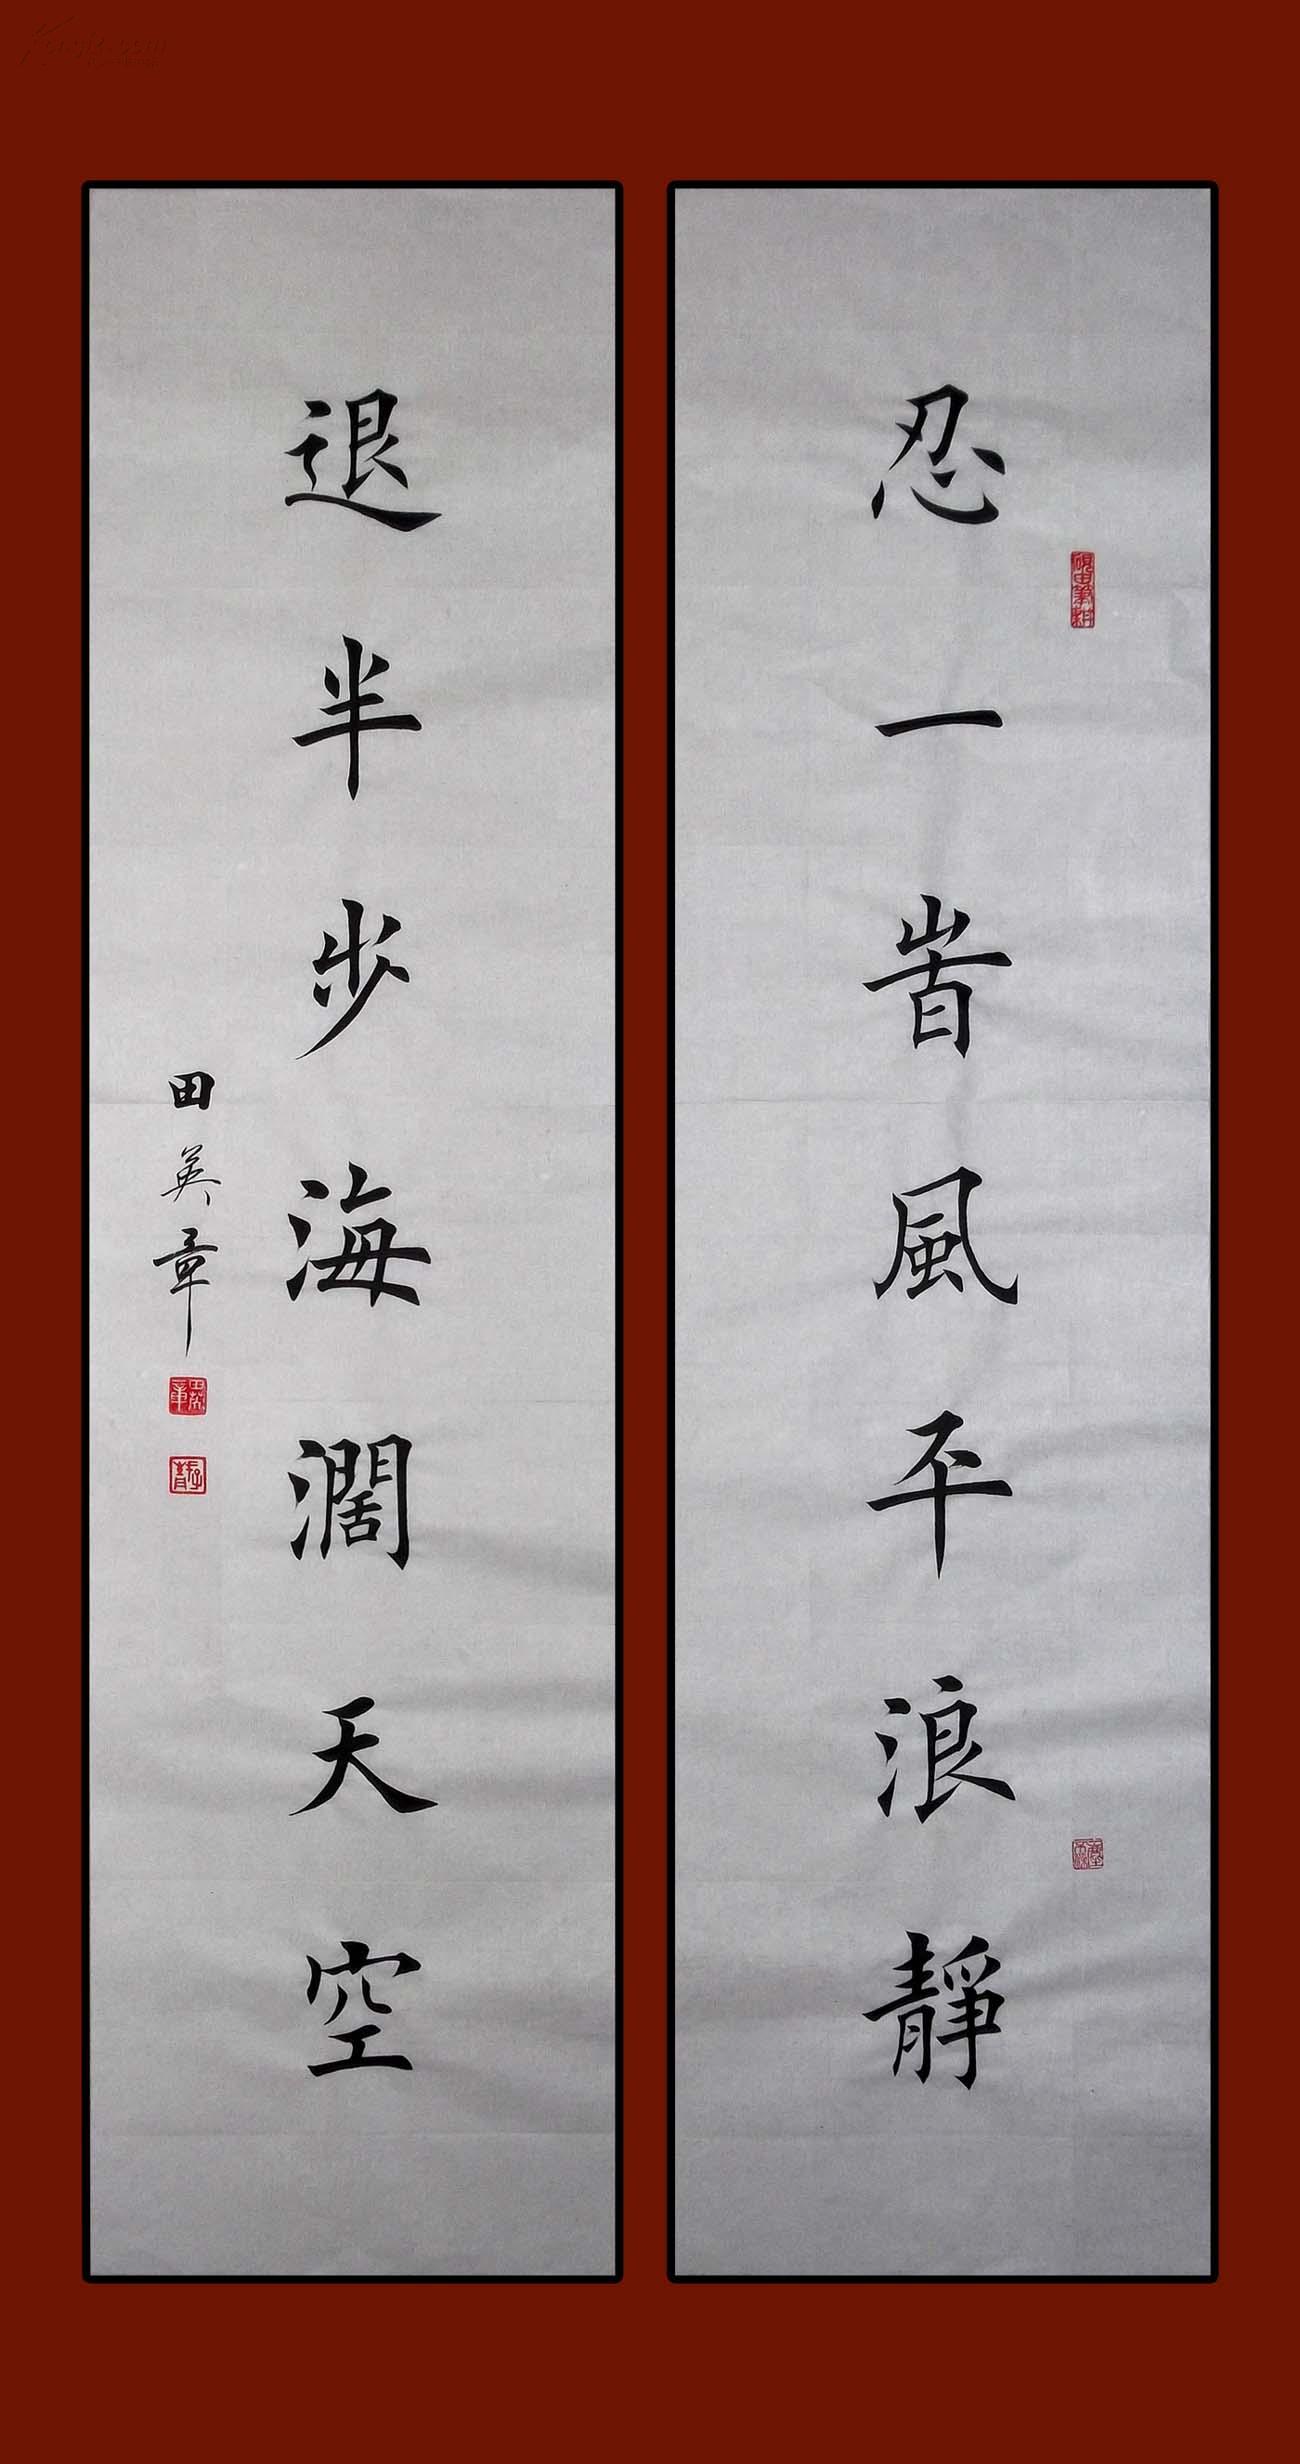 忍一旹風平浪静
退半步海濶天空
田英章